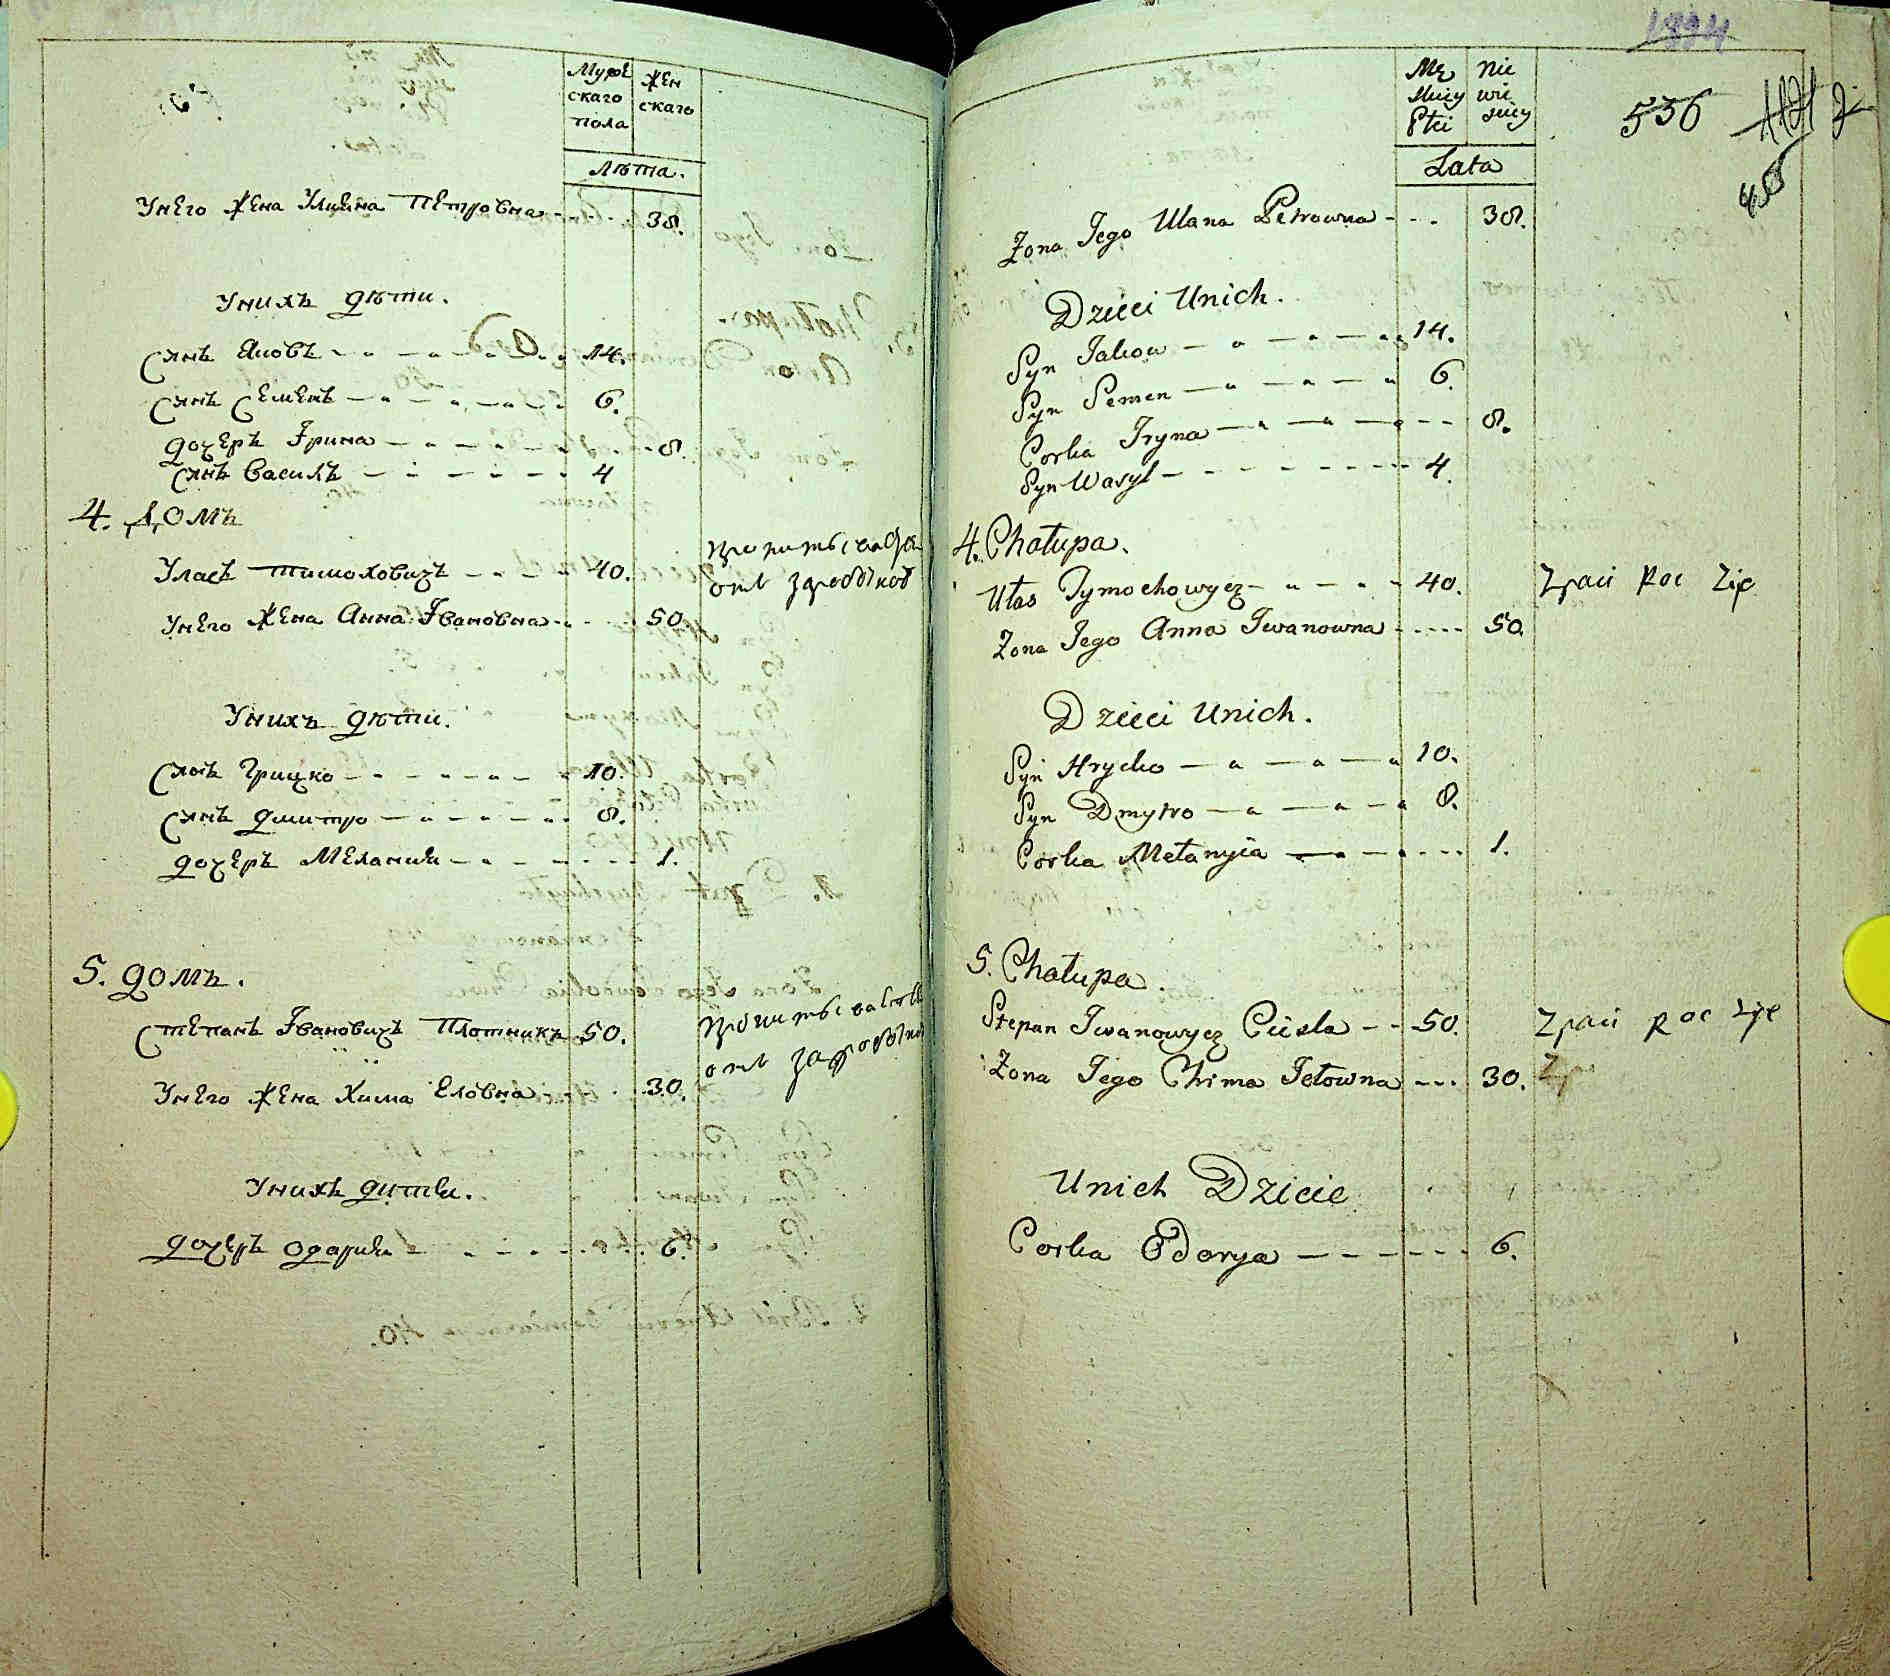 Мужескаго пола
Женскаго
Лѣта.
Унего Жена Улияна Петровна 38.
Унихъ дѣти.
Сынъ Яковъ 14.
Сынъ Семенъ 6.
дочеръ Ірина 8.
Сынъ Василь 4
4. Домъ
Уласъ Тимоховичъ 40.
Унего Жена Анна Івановна 50.
Унихъ дѣти.
Сынъ Грицко 10.
Сынъ дмитро 8.
дочеръ Мелания 1.
5. домъ.
Степанъ Івановичъ Плотникъ 50.
отъ
Унего Жена Хима Еловна 30.
Унихъ дитя.
дочеръ одария 6.
1894
Męskiey Płci
Niewiesciey
536
Lata
Zona Jego Ulana Petrowna 38.
Dzieci Unich.
Syn Jakow 14.
Syn Semen 6.
Corka Iryna 8.
Syn Wasyl 4.
4. Chałupa.
Ułas Tymochowycz 40.
Zona Jego Anna Iwanowna 50.
Dzieci Unich.
Syn Hrycko 10.
Syn Dmytro 8.
Corka Mełanyia 1.
5. Chałupa.
Stepan Iwanowycz Ciesla 50.
Zona Jego Chima Jełowna 30.
Unich Dziecie
Corka Odarya 6.